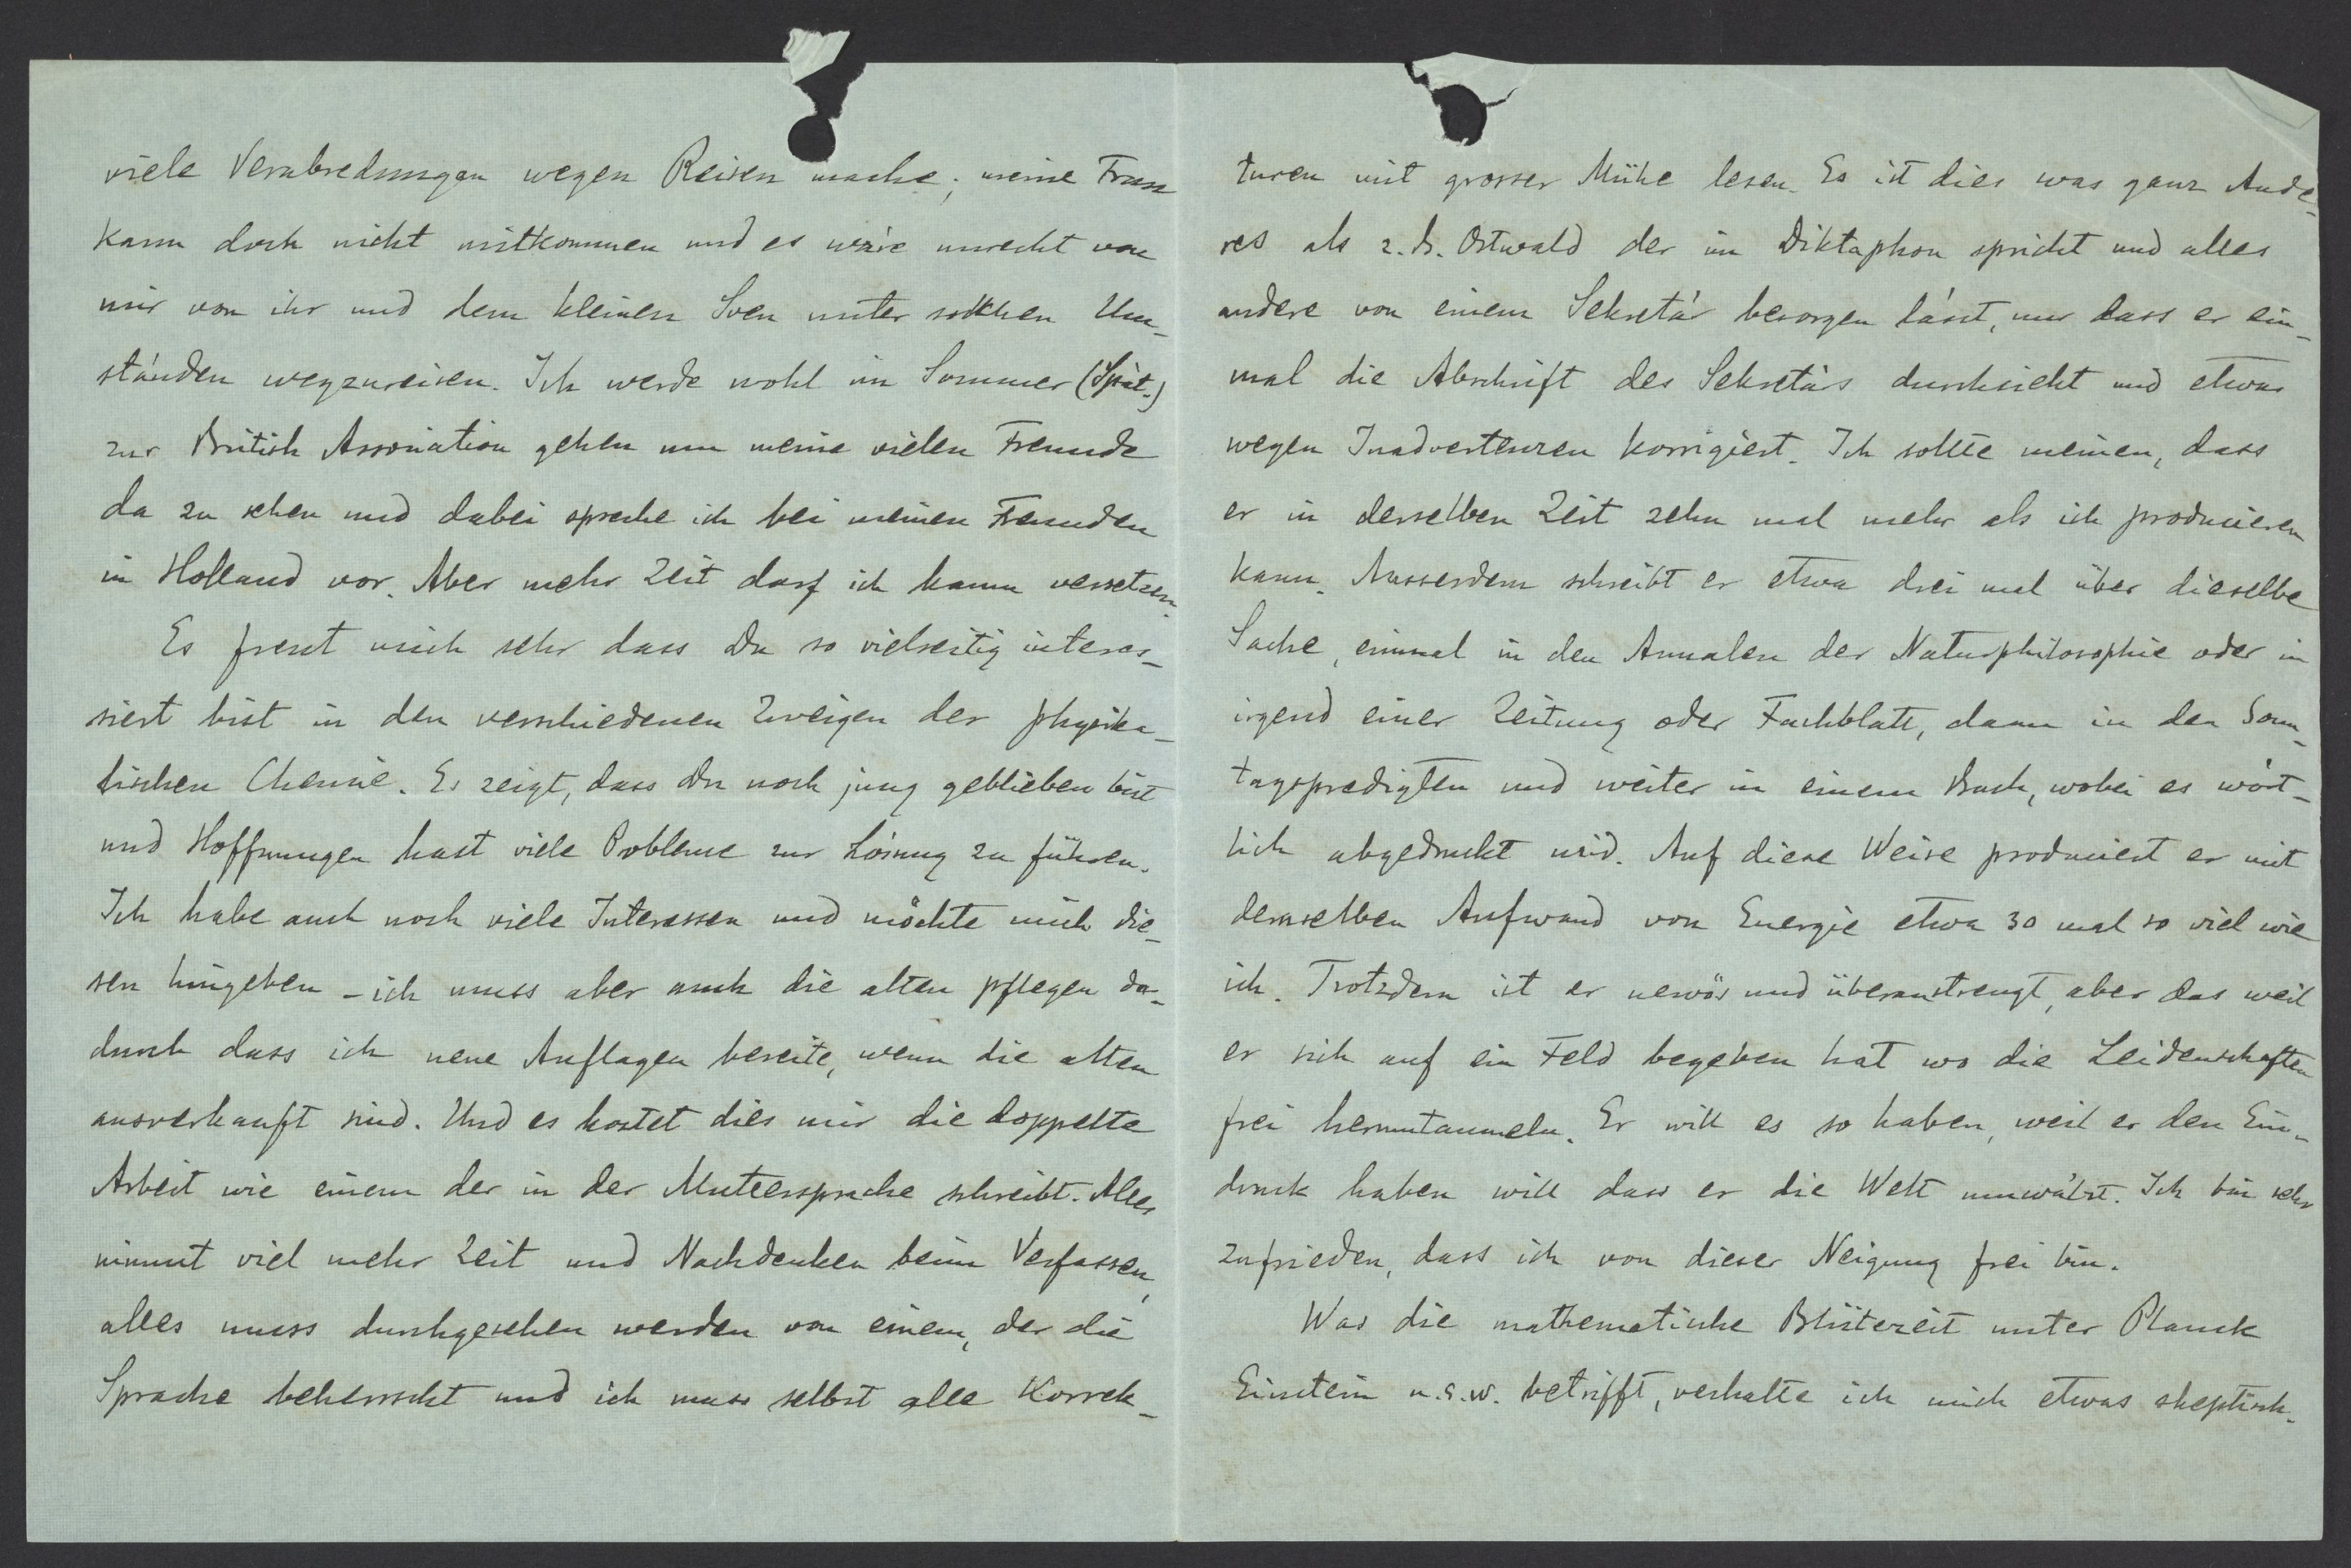 viele Verabredungen wegen Reisen mache; meine Frau
kann doch nicht mitkommen und es wäre unrecht von
mir von ihr und dem kleinen Sven unter solchen Um-
ständen wegzureisen. Ich werde wohl im Sommer (Spät-)
zur British Association gehen um meine vielen Freunde
da zu sehen und dabei spreche ich bei meinen Freunden
in Holland vor. Aber mehr Zeit darf ich kaum versetzen.
Es freut mich sehr dass Du so vielseitig interes-
siert bist in den verschiedenen Zweigen der physika-
lischen Chemie. Es zeigt, dass Du noch jung geblieben bist
und Hoffnungen hast viele Probleme zur Lösung zu führen.
Ich habe auch noch viele Interessen und möchte mich die-
sen hingeben – ich muss aber auch die alten pflegen da-
durch dass ich neue Auflagen bereite, wenn die alten
ausverkauft sind. Und es kostet dies mir die doppelte
Arbeit wie einem der in der Muttersprache schreibt. Alles
nimmt viel mehr Zeit und Nachdenken beim Verfassen,
alles muss durchgesehen werden von einem, der die
Sprache beherrscht und ich muss selbst alle Korrek-
turen mit grosser Mühe lesen. Es ist dies was ganz Ande-
res als z.B. Ostwald der im Diktaphon spricht und alles
andere von einem Sekretär besorgen lässt, nur dass er ein-
mal die Abschrift des Sekretärs durchsieht und etwas
wegen Inadvertenzen korrigiert. Ich sollte meinen, dass
er in derselben Zeit zehn mal mehr als ich producieren
kann. Ausserdem schreibt er etwa drei mal über dieselbe
Sache, einmal in den Annalen der Naturphilosophie oder in
irgend einer Zeitung oder Fachblatt, dann in den Sonn-
tagspredigten und weiter in einem Buch, wobei es wört-
lich abgedruckt wird. Auf diese Weise produciert er mit
demselben Aufwand von Energie etwa 30 mal so viel wie
ich. Trotzdem ist er nervös und überanstrengt, aber das weil
er sich auf ein Feld begeben hat wo die Leidenschaften
frei herumtaumeln. Er will es so haben, weil er den Ein-
druck haben will dass er die Welt umwälzt. Ich bin sehr
zufrieden, dass ich von dieser Neigung frei bin.
Was die mathematische Blütezeit unter Planck
Einstein u.s.w. betrifft, verhalte ich mich etwas skeptisch.